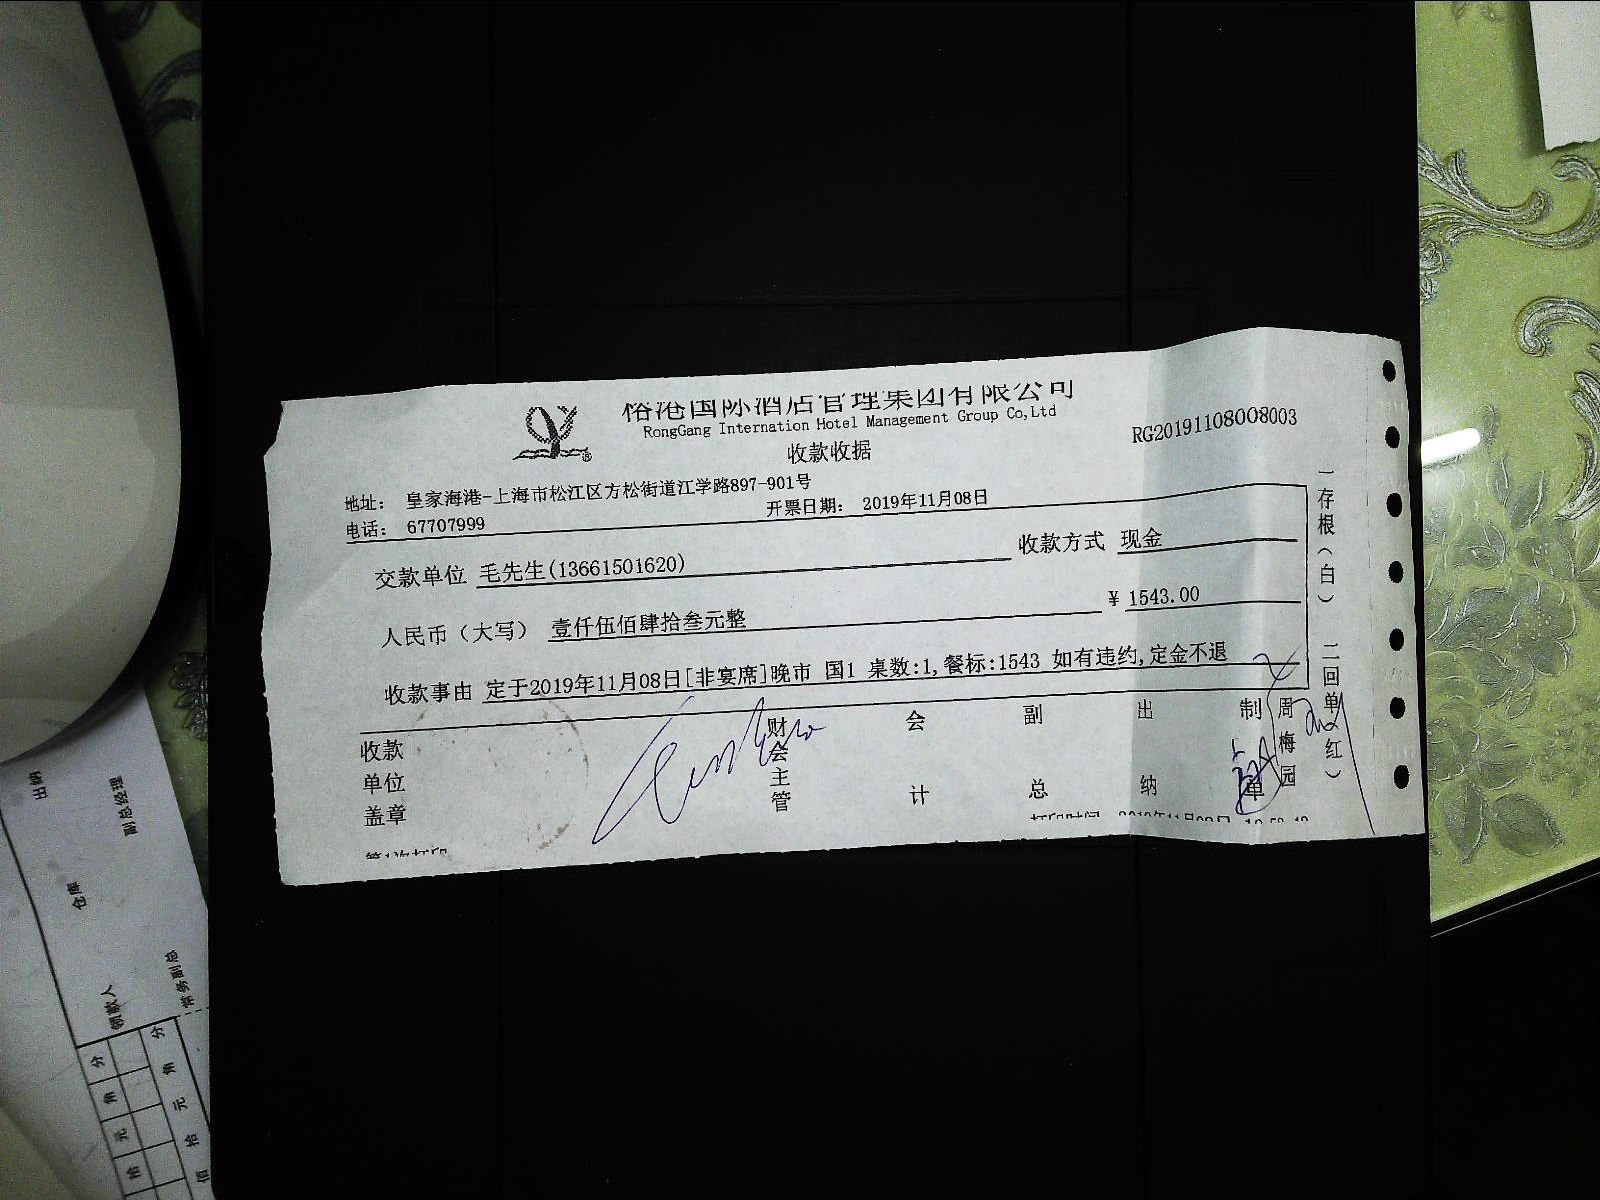 裕港国际酒店管理集团有限公司
RongGang Internation Hotel Management Group Co,Ltd
收款收据
RG20191108008003
地址： 皇家海港-上海市松江区方松街道江学路897-901号
电话： 67707999 开票日期： 2019年11月08日
交款单位 毛先生(13661501620) 收款方式 现金
人民币（大写） 壹仟伍佰肆拾叁元整 ¥ 1543.00
收款事由 定于2019年11月08日[非宴席]晚市 国1 桌数:1,餐标:1543 如有违约,定金不退
收款单位盖章 财会主管 会计 副总 出纳 制单 周梅园
第1次打印 打印时间
一存根（白） 二回单（红）
出纳
副总经理
仓库
领款人
常务副总
分 角 元 拾
分 角 元 拾 佰